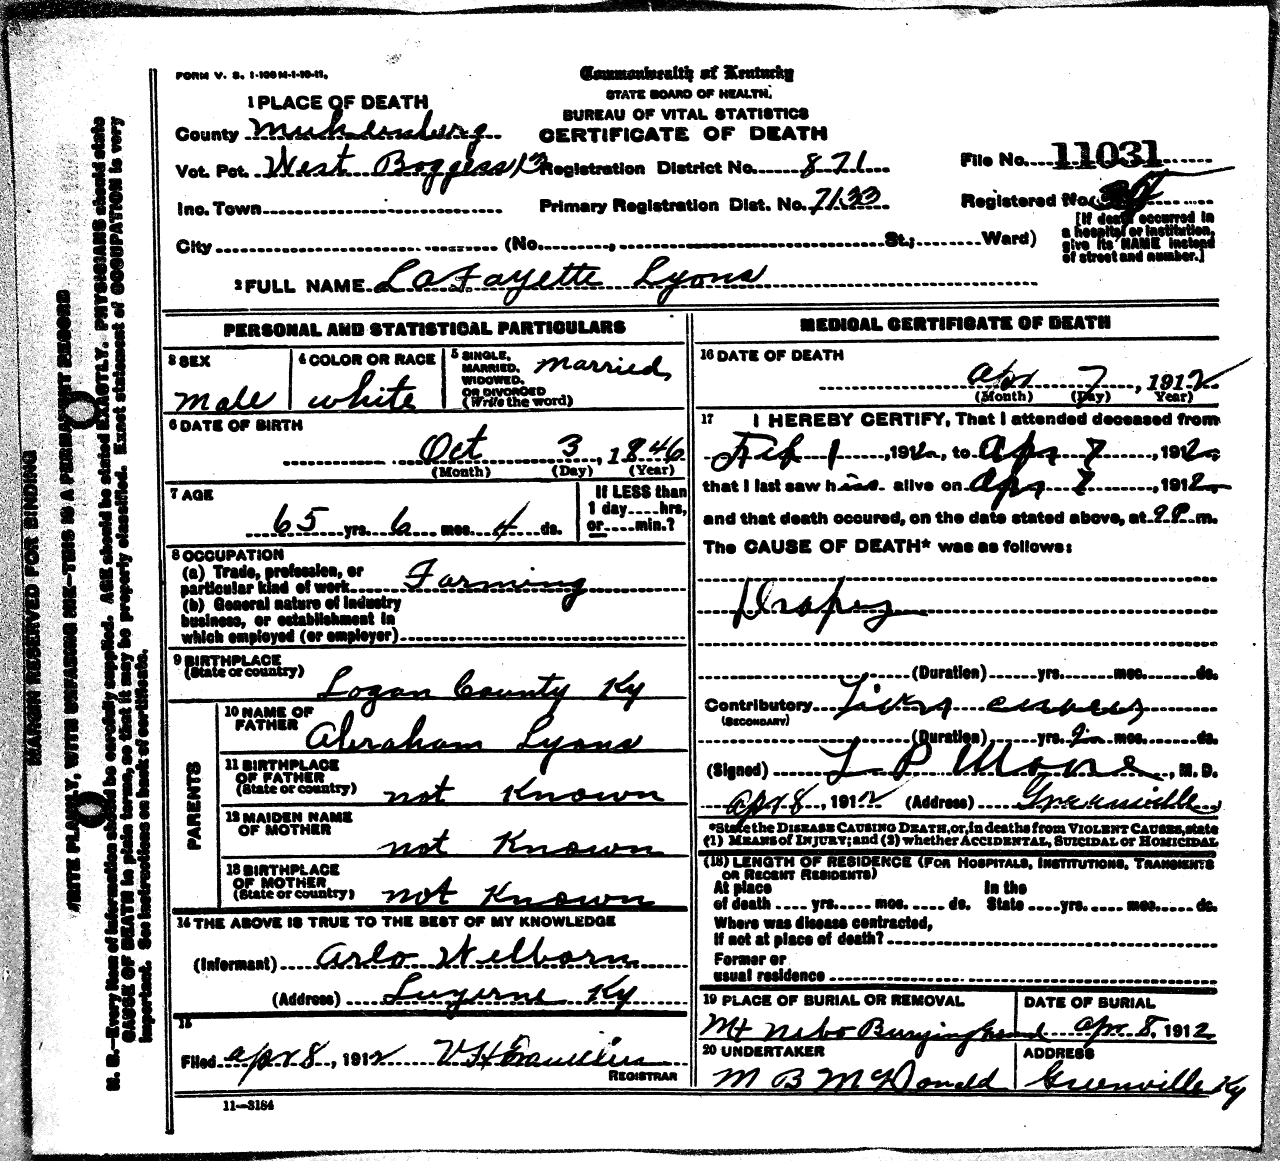 FORM V. S. 1-100M-1-10-11.
Commonwealth of Kentucky
STATE BOARD OF HEALTH.
BUREAU OF VITAL STATISTICS
CERTIFICATE OF DEATH
1 PLACE OF DEATH
County Muhlenburg
Vot. Pct. West Boggess 13
Registration District No. 871
File No. 11031
Inc. Town
Primary Registration Dist. No. 7133
Registered No.
City (No. , St.; Ward)
[If death occurred in
a hospital or institution,
give its NAME instead
of street and number.]
2 FULL NAME LaFayette Lyons
PERSONAL AND STATISTICAL PARTICULARS
3 SEX
Male
4 COLOR OR RACE
white
5 SINGLE,
MARRIED,
WIDOWED,
OR DIVORCED
(Write the word)
Married
6 DATE OF BIRTH
Oct 3, 1846
(Month) (Day) (Year)
7 AGE
65 yrs. 6 mos. 4 ds.
If LESS than
1 day....hrs,
or....min.?
8 OCCUPATION
(a) Trade, profession, or
particular kind of work Farming
(b) General nature of industry
business, or establishment in
which employed (or employer)
9 BIRTHPLACE
(State or country)
Logan County Ky
PARENTS
10 NAME OF
FATHER
Abraham Lyons
11 BIRTHPLACE
OF FATHER
(State or country)
not Known
12 MAIDEN NAME
OF MOTHER
not Known
13 BIRTHPLACE
OF MOTHER
(State or country)
not Known
14 THE ABOVE IS TRUE TO THE BEST OF MY KNOWLEDGE
(Informant) Arlo Welborn
(Address) Luzerne Ky
15
Filed Apr 8, 1912
REGISTRAR
11-3184
MEDICAL CERTIFICATE OF DEATH
16 DATE OF DEATH
Apr 7, 1912
(Month) (Day) (Year)
17 I HEREBY CERTIFY, That I attended deceased from
Feb 1, 1912, to Apr 7, 1912,
that I last saw him alive on Apr 7, 1912,
and that death occured, on the date stated above, at 9 P m.
The CAUSE OF DEATH* was as follows:
Dropsy
(Duration) yrs. mos. ds.
Contributory Liver
(SECONDARY)
(Duration) yrs. mos. ds.
(Signed) L P Moore, M. D.
Apr 8, 1912 (Address) Greenville
*State the DISEASE CAUSING DEATH, or, in deaths from VIOLENT CAUSES, state
(1) MEANS of INJURY; and (2) whether ACCIDENTAL, SUICIDAL or HOMICIDAL
(18) LENGTH OF RESIDENCE (FOR HOSPITALS, INSTITUTIONS, TRANSIENTS
OR RECENT RESIDENTS)
At place In the
of death .... yrs. .... mos. .... ds. State .... yrs. .... mos. .... ds.
Where was disease contracted,
If not at place of death?
Former or
usual residence
19 PLACE OF BURIAL OR REMOVAL
Mt Nebo Burying Ground
DATE OF BURIAL
Apr 8, 1912
20 UNDERTAKER
M B McDonald
ADDRESS
Greenville Ky
MARGIN RESERVED FOR BINDING
WRITE PLAINLY, WITH UNFADING INK—THIS IS A PERMANENT RECORD
N. B.—Every item of information should be carefully supplied. AGE should be stated EXACTLY. PHYSICIANS should state
CAUSE OF DEATH in plain terms, so that it may be properly classified. Exact statement of OCCUPATION is very
important. See instructions on back of certificate.